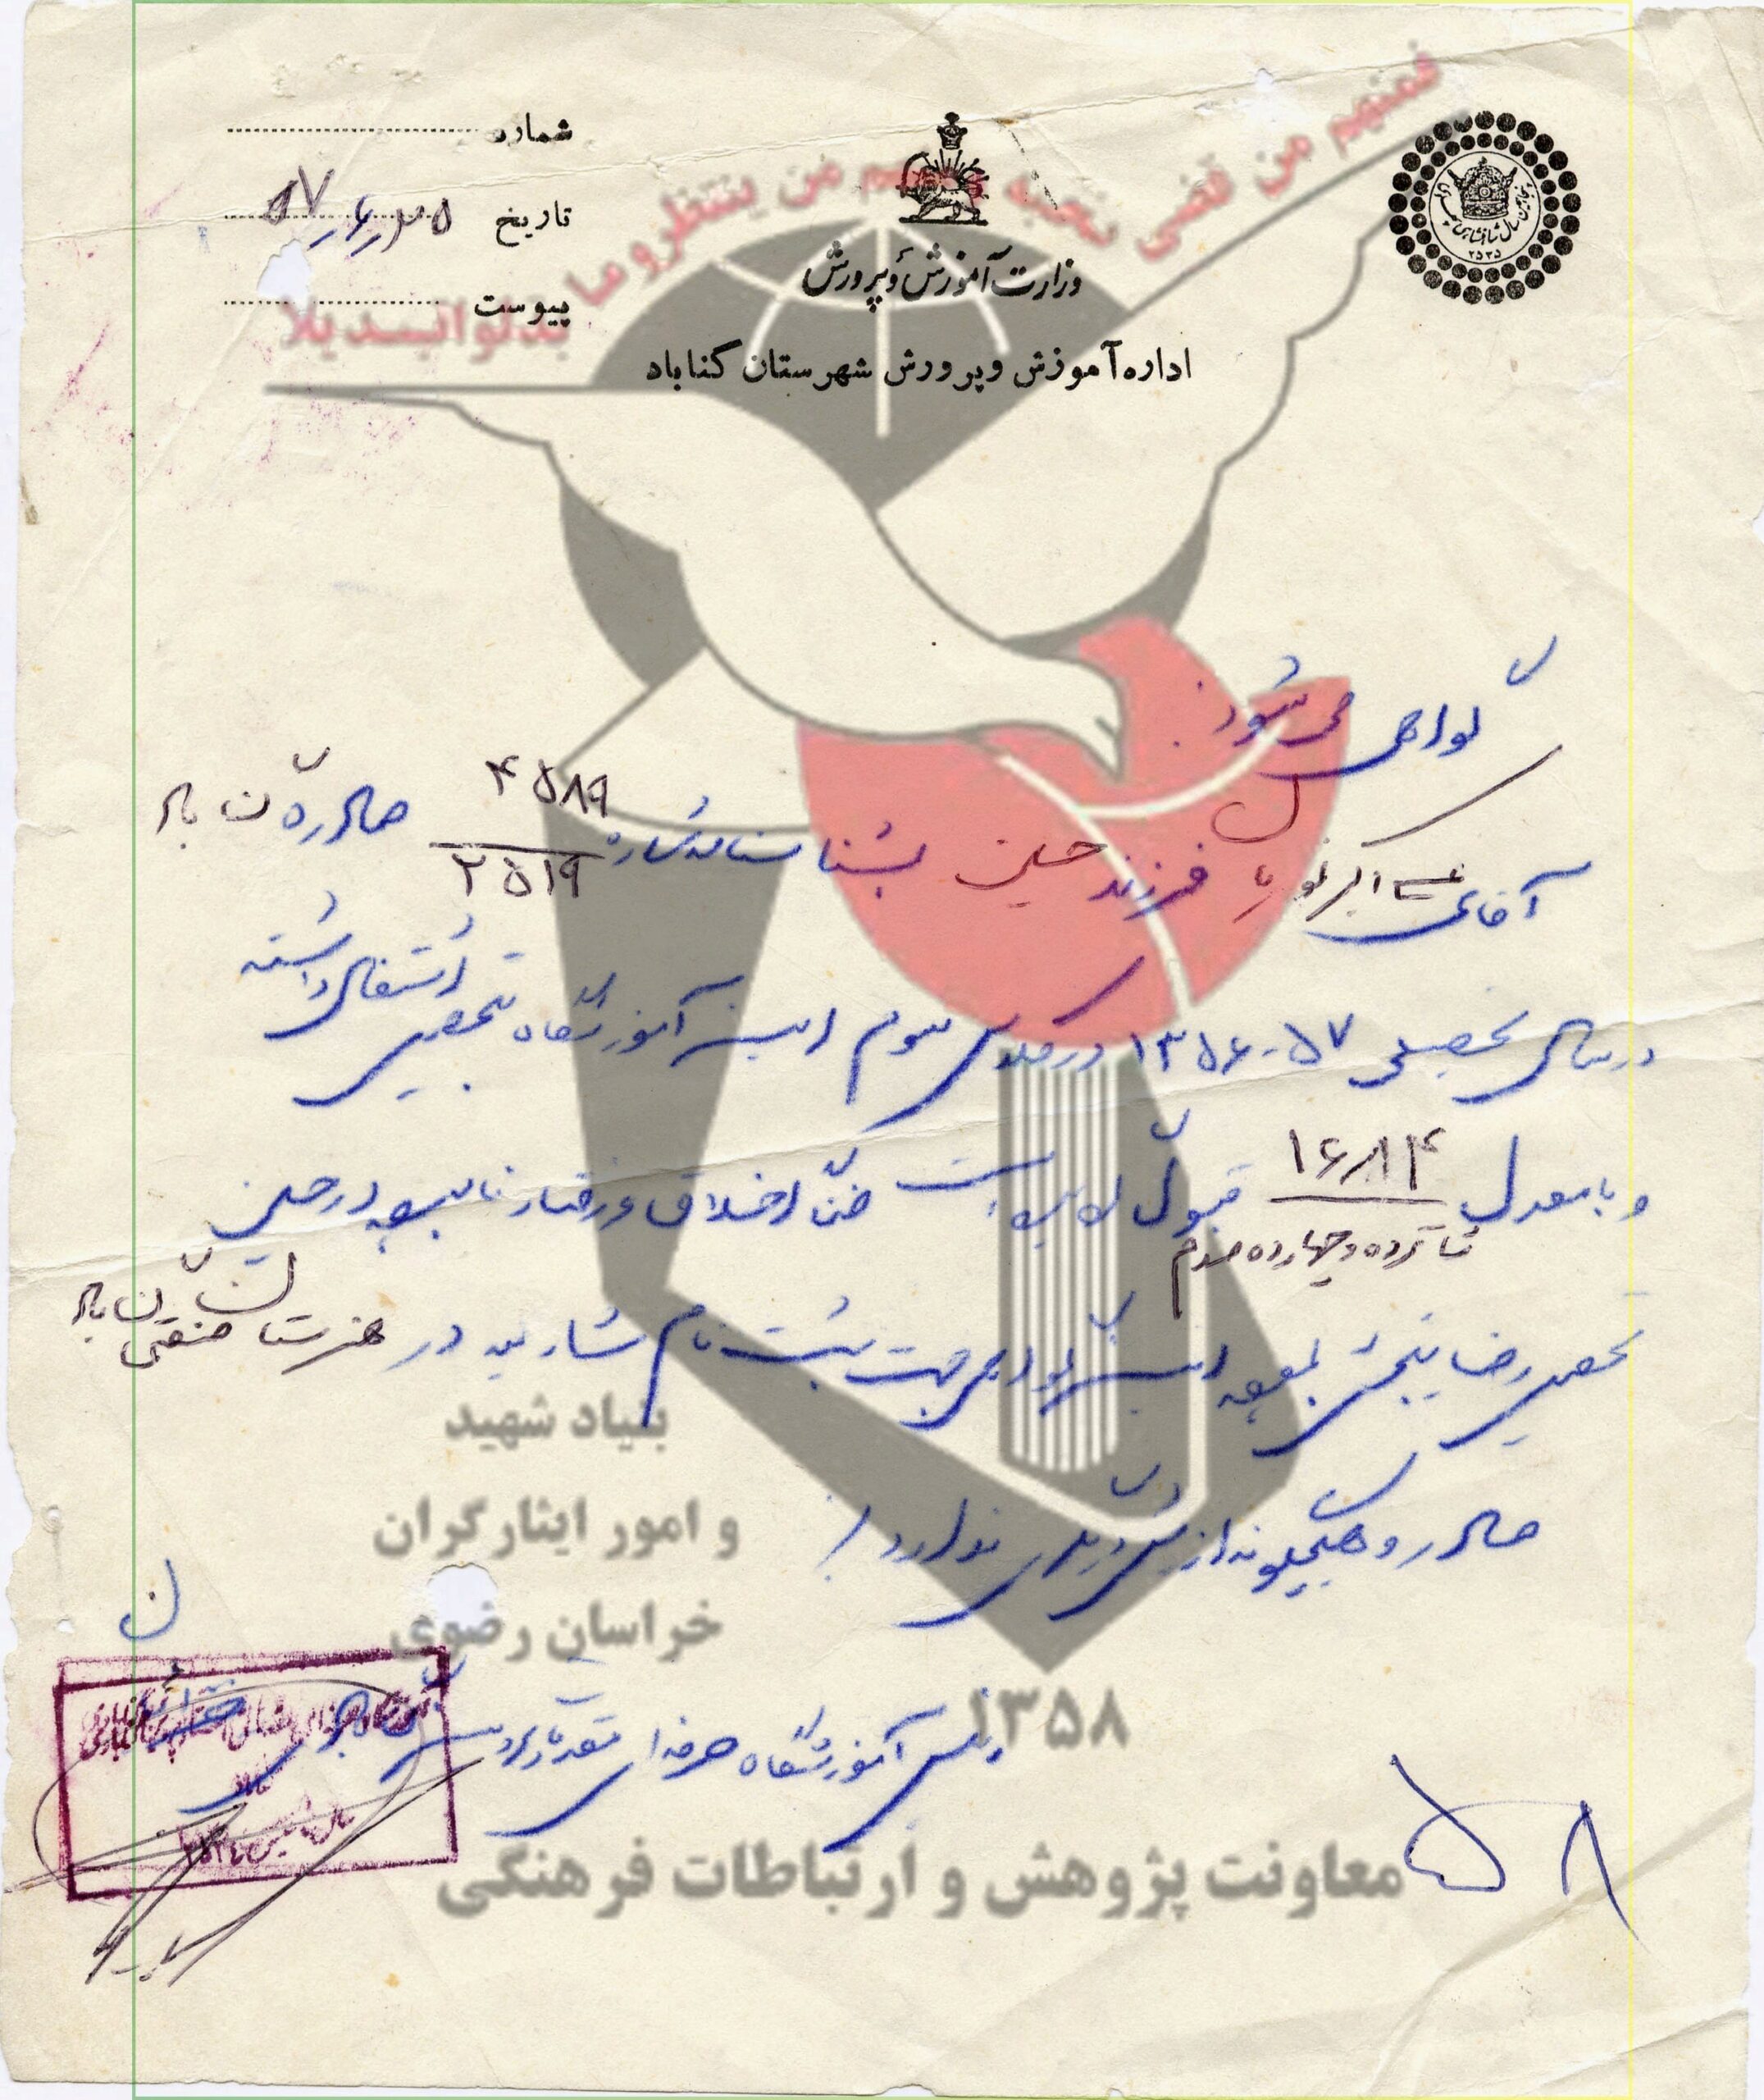 فمنهم من قضی نحبه و منهم من ینتظر و ما بدلوا تبدیلا
شماره
تاریخ ۵۷٫۶٫۲۵
پیوست
وزارت آموزش و پرورش
اداره آموزش و پرورش شهرستان گناباد
۲۵۳۵
گواهی می شود
آقای علی اکبر فرزند حسین بشناسنامه شماره ۴۵۸۹ صادره گناباد
۲۵۱۹
در سال تحصیلی ۵۷-۱۳۵۶ در کلاس سوم این آموزشگاه بتحصیل اشتغال داشته
و با معدل ۱۶/۱۴ قبول گردیده است ضمناً اخلاق و رفتار نامبرده در حین
شانزده و چهارده صدم
تحصیل رضایتبخش بوده این گواهی جهت ثبت نام نامبرده در هنرستان صنعتی گناباد
صادر و هیچگونه ارزش دیگری ندارد
رئیس آموزشگاه حرفه ای
بنیاد شهید
و امور ایثارگران
خراسان رضوی
۱۳۵۸
معاونت پژوهش و ارتباطات فرهنگی
۵۸